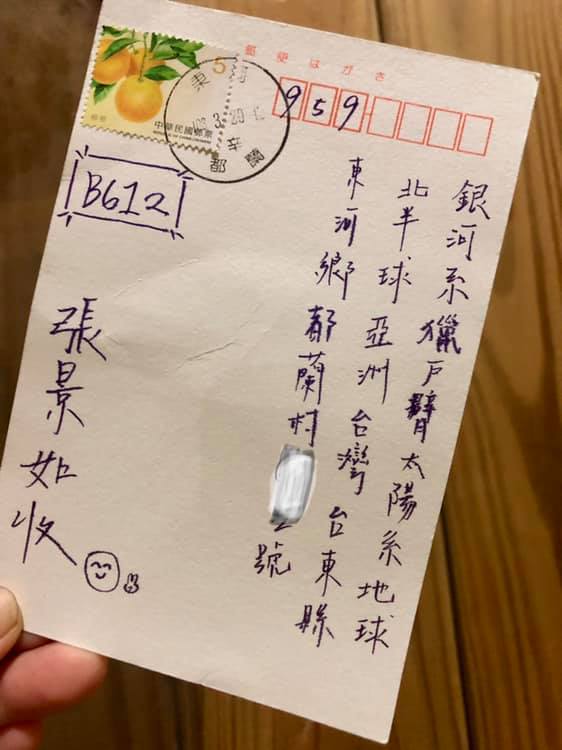 郵便はがき
5
郵票
中華民國郵票
REPUBLIC OF CHINA (TAIWAN)
東河
都蘭
959
銀河系獵戶臂太陽系地球
北半球亞洲台灣台東縣
東河鄉都蘭村
號
B612
張景如收